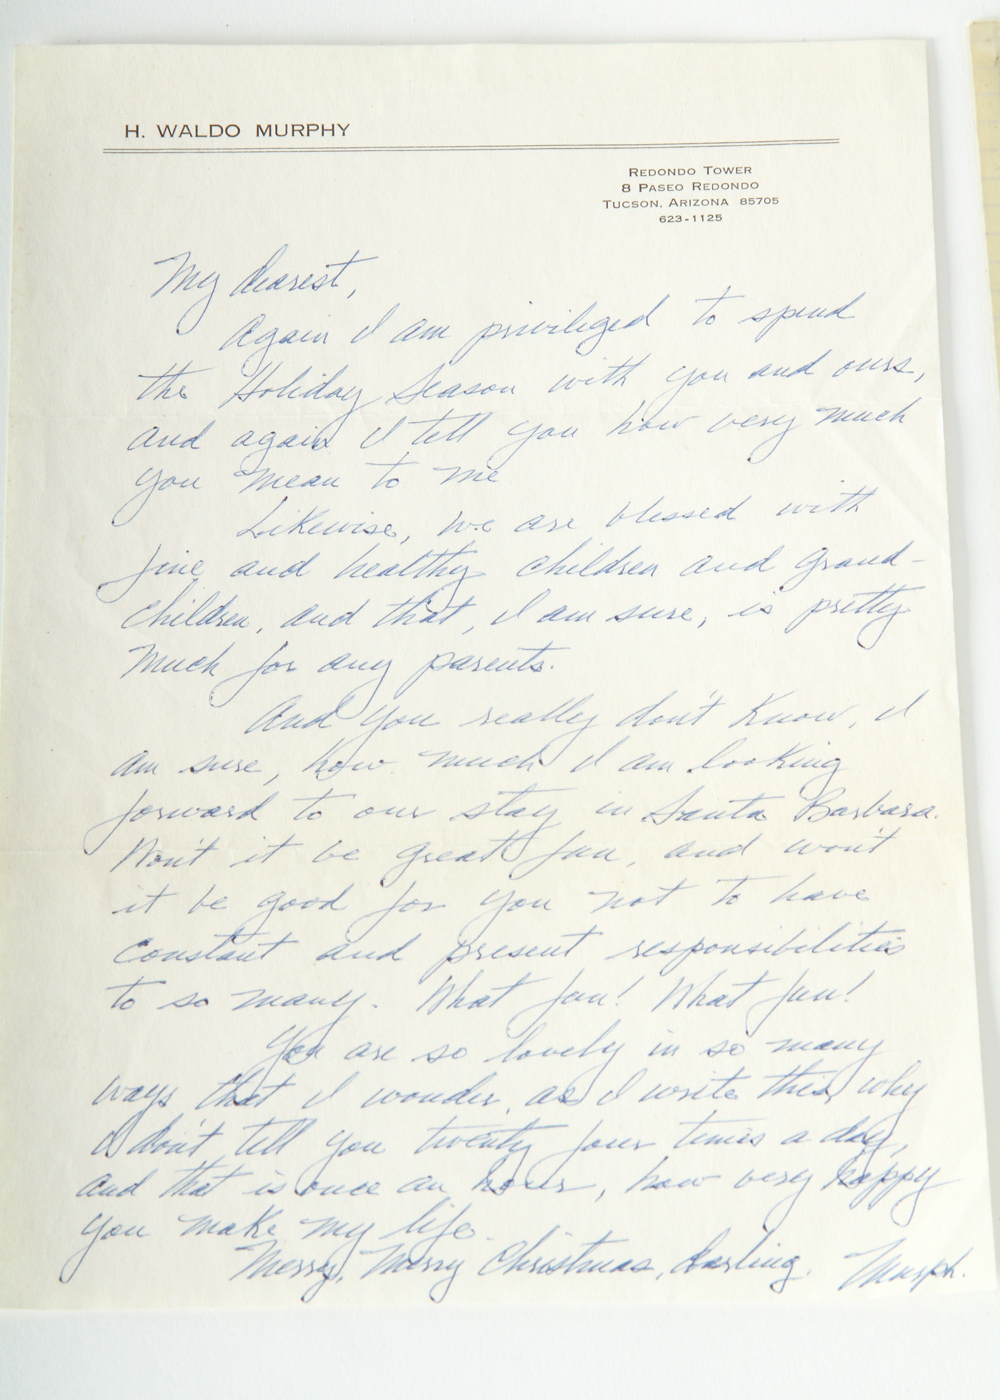 H. WALDO MURPHY
REDONDO TOWER
8 PASEO REDONDO
TUCSON, ARIZONA 85705
623-1125
My dearest,
Again I am privileged to spend
the Holiday Season with you and ours,
and again I tell you how very much
you mean to me.
Likewise, we are blessed with
fine and healthy children and grand-
children, and that, I am sure, is pretty
much for any parents.
And you really don't know, I
am sure, how much I am looking
forward to our stay in Santa Barbara.
Won't it be great fun, and won't
it be good for you not to have
constant and present responsibilities
to so many. What fun! What fun!
You are so lovely in so many
ways that I wonder, as I write this, why
I don't tell you twenty four times a day,
and that is once an hour, how very happy
you make my life.
Merry, Merry Christmas, darling. Murph.